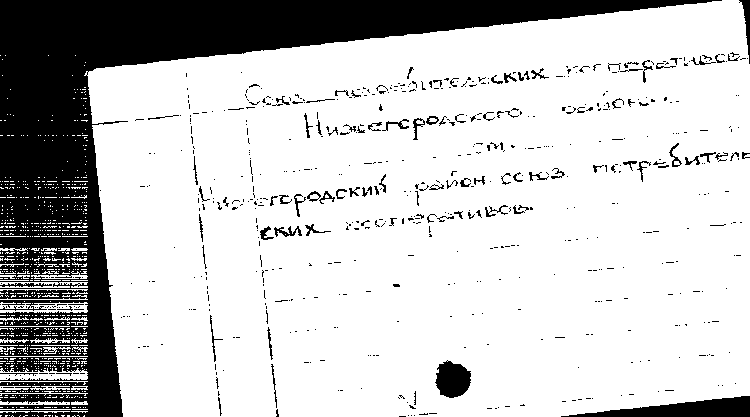 Союз потребительских кооперативов
Нижегородского района.
см.
Нижегородский район. союз потребитель
ских кооперативов.